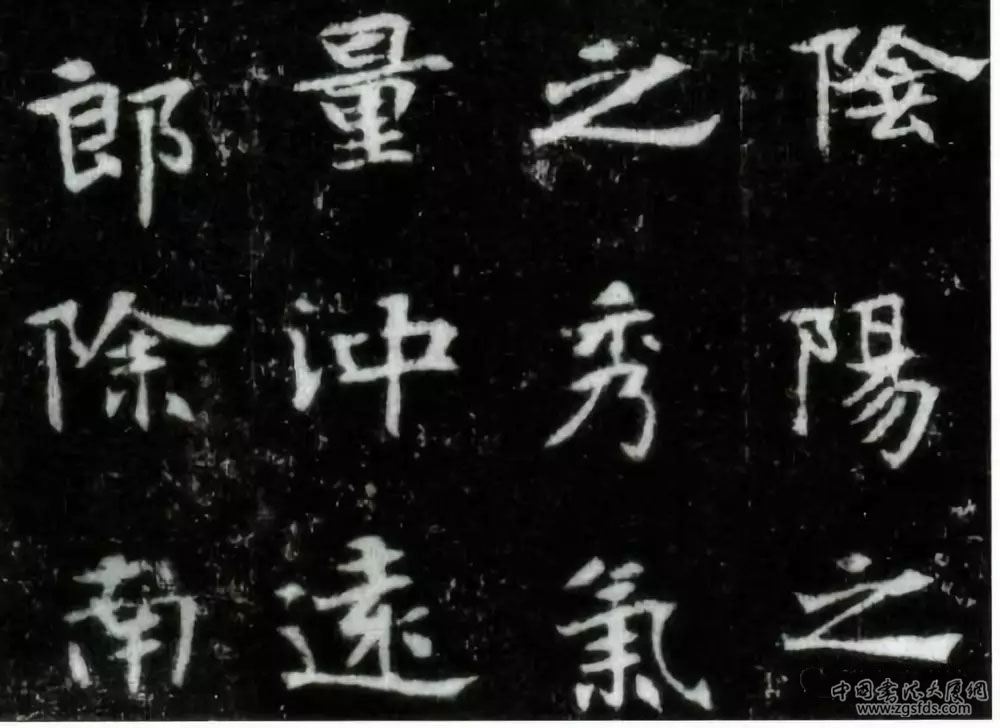 陰陽之
之秀氣
量沖遠
郎除南
中国书法大展网
www.zgsfds.com